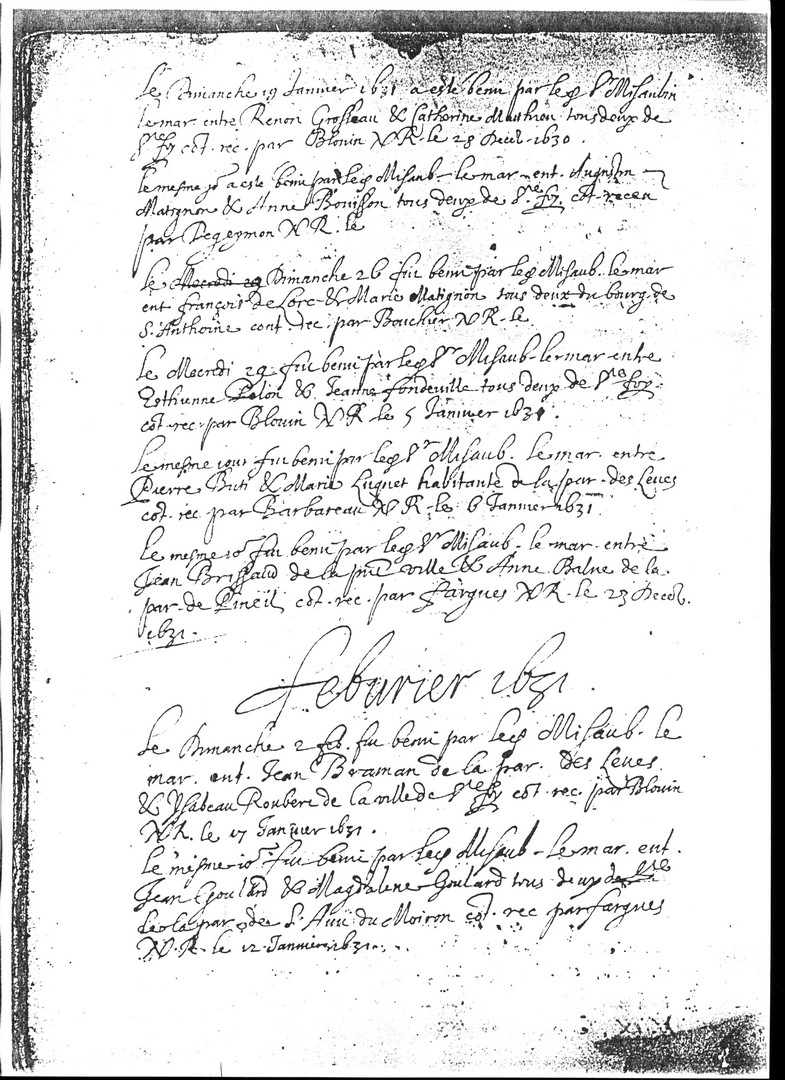 Le Dimanche 19 Janvier 1631 a esté beni par le Sr Misaubin
le mar entre Renon Grosleau & Catherine Mathieu tous deux de
Ste foy cot. rec. par Blouin NR. le 28 Decēb. 1630.
le mesme jor a esté beni par le Sr Misaub. le mar. ent. Augustin
Matignon & Anne Bouisson tous deux de Ste foy. cot. receu
par Pegeymon NR. le
Le Mecredi 29 Dimanche 26 fut beni par le Misaub. le mar
ent françois de Lorc & Marie Matignon tous deux du bourg de
S. Anthoine cont. rec. par Bouchier NR. le
Le Mecredi 29 fut beni par le Sr Misaub. le mar entre
Esthienne & Jeanne fondeville tous deux de Ste foy
cot. rec. par Blouin NR le 5 Janvier 1631.
Le mesme jour fut beni par le Sr Misaub. le mar. entre
Pierre Buti & Marie Luquet habitante de la par. des Leves
cot. rec. par Barbareau NR. le 6 Janvier 1631
Le mesme jor fut beni par le Sr Misaub. le mar. entre
Jean Brissaud de la pnt ville & Anne Balue de la
par. de Pineil cot. rec. par Fargues NR. le 23 Decēb.
1631.
Feburier 1631
Le Dimanche 2 feb. fut beni par le Misaub. le
mar. ent. Jean Braman de la par. des Leves
& Ysabeau Roubert de la ville de Ste foy cot. rec. par Blouin
NR. le 17 Janvier 1631.
Le mesme jor fut beni par le Misaub. le mar. ent.
Jean Goulard & Magdalene Goulard tous deux de Ste
de la par. de S. Avit du Moiron cot. rec par fargues
NR. le 12 Janvier 1631.